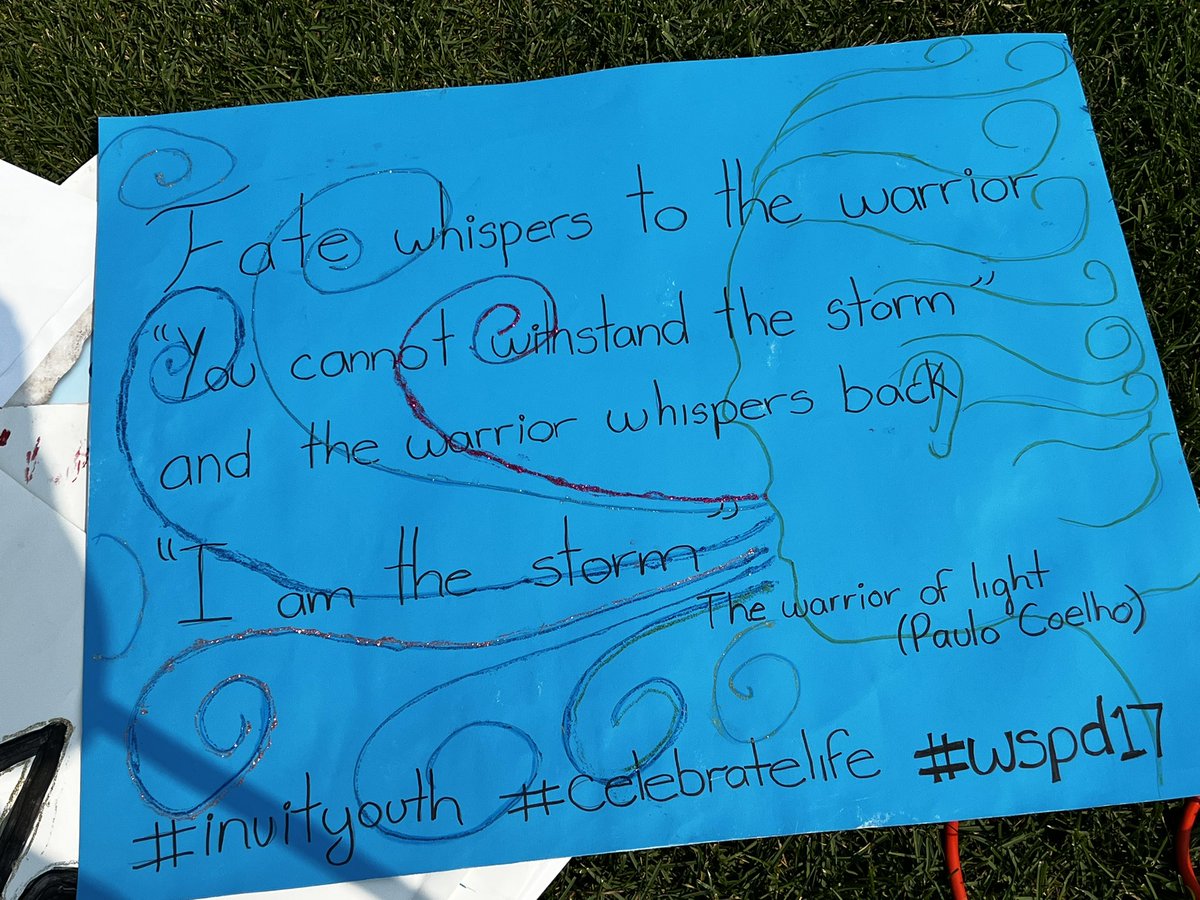 Fate whispers to the warrior
"You cannot withstand the storm"
and the warrior whispers back
"I am the storm"
The warrior of light
(Paulo Coelho)
#inuityouth #celebratelife #wspd17